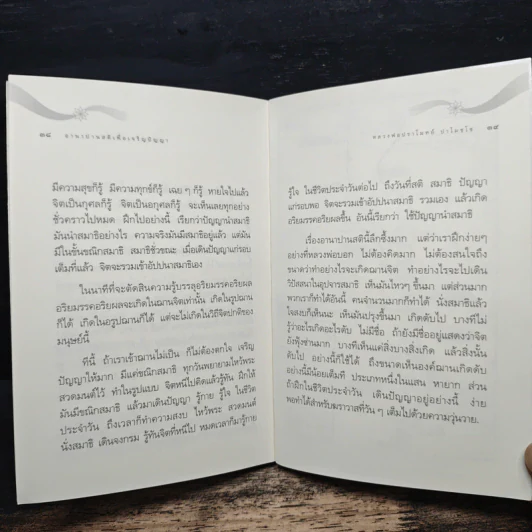 ๓๔ อานาปานสติเพื่อเจริญปัญญา
มีความสุขก็รู้ มีความทุกข์ก็รู้ เฉย ๆ ก็รู้ หายใจไปแล้ว
จิตเป็นอกุศลก็รู้ จิตเป็นกุศลก็รู้ จะเห็นเลยทุกอย่าง
ชั่วคราวไปหมด ฝึกไปอย่างนี้ เรียกว่าปัญญานำสมาธิ
มันนำสมาธิอย่างไร ความจริงมันมีสมาธิอยู่แล้ว แต่มัน
มีในขั้นขณิกสมาธิ สมาธิชั่วขณะ เมื่อเดินปัญญาแก่รอบ
เต็มที่แล้ว จิตจะรวมเข้าอัปปนาสมาธิเอง
ในนาทีที่จะตัดสินความรู้บรรลุอริยมรรคอริยผล
อริยมรรคอริยผลจะเกิดในฌานจิตเท่านั้น เกิดในรูปฌาน
ก็ได้ เกิดในอรูปฌานก็ได้ แต่จะไม่เกิดในวิถีจิตปกติของ
มนุษย์นี้
ทีนี้ ถ้าเราเข้าฌานไม่เป็น ก็ไม่ต้องตกใจ เจริญ
ปัญญาให้มาก มีแค่ขณิกสมาธิ ทุกวันพยายามไหว้พระ
สวดมนต์ไว้ ทำในรูปแบบ จิตหนีไปคิดแล้วรู้ทัน ฝึกให้
มันมีขณิกสมาธิ แล้วมาเดินปัญญา รู้กาย รู้ใจ ในชีวิต
ประจำวัน ถึงเวลาก็ทำความสงบ ไหว้พระ สวดมนต์
นั่งสมาธิ เดินจงกรม รู้ทันจิตที่หนีไป หมดเวลาก็มารู้กาย
หลวงพ่อปราโมทย์ ปาโมชฺโช ๓๕
รู้ใจ ในชีวิตประจำวันต่อไป ถึงวันที่สติ สมาธิ ปัญญา
แก่รอบพอ จิตจะรวมเข้าอัปปนาสมาธิ รวมเอง แล้วเกิด
อริยมรรคอริยผลขึ้น อันนี้เรียกว่า ใช้ปัญญานำสมาธิ
เรื่องอานาปานสตินี้ลึกซึ้งมาก แต่ว่าเราฝึกง่ายๆ
อย่างที่หลวงพ่อบอก ไม่ต้องคิดมาก ไม่ต้องสนใจถึง
ขนาดว่าทำอย่างไรจะเกิดฌานจิต ทำอย่างไรจะไปเดิน
วิปัสสนาในอุปจารสมาธิ เห็นมันไหวๆ ขึ้นมา แต่ส่วนมาก
พวกเราก็ทำได้อันนี้ คนจำนวนมากก็ทำได้ นั่งสมาธิแล้ว
ใจสงบก็เห็นนะ เห็นมันปรุงขึ้นมา เกิดดับไป บางทีไม่
รู้ว่าอะไรเกิดอะไรดับ ไม่มีชื่อ ถ้ายังมีชื่ออยู่แสดงว่าจิต
ยังฟุ้งซ่านมาก บางทีเห็นแค่สิ่งบางสิ่งเกิด แล้วสิ่งนั้น
ดับไป อย่างนี้ก็ใช้ได้ ถึงขนาดเห็นองค์ฌานเกิดดับ
อย่างนี้มีน้อยเต็มที ประเภทหนึ่งในแสน หายาก ส่วน
ถ้าฝึกในชีวิตประจำวัน เดินปัญญาอยู่อย่างนี้ ง่าย
พอทำได้สำหรับฆราวาสที่วัน ๆ เต็มไปด้วยความวุ่นวาย.